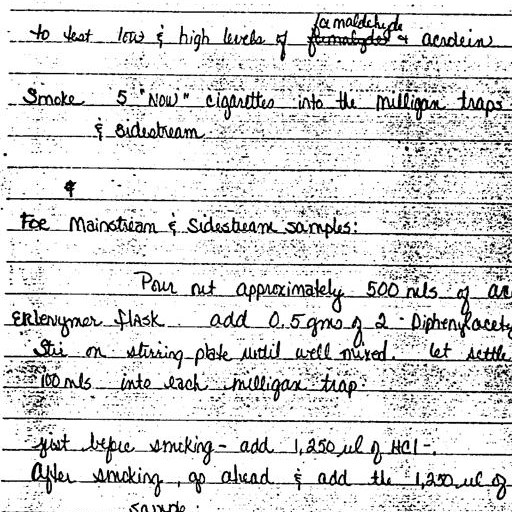 formaldehyde
to test low & high levels of formalydes & acrolein
Smoke 5 "NOW" cigarettes into the milligan traps
& sidestream
&
For Mainstream & Sidestream samples:
Pour out approximately 500 mls of
Erlenymer flask. add 0.5 gms of 2-Diphenylacety
Stir on stirring plate until well mixed. let settle
100 mls into each milligan trap.
just before smoking - add 1,250 ul of HCl -.
After smoking, go ahead & add the 1,250 ul of
sample.